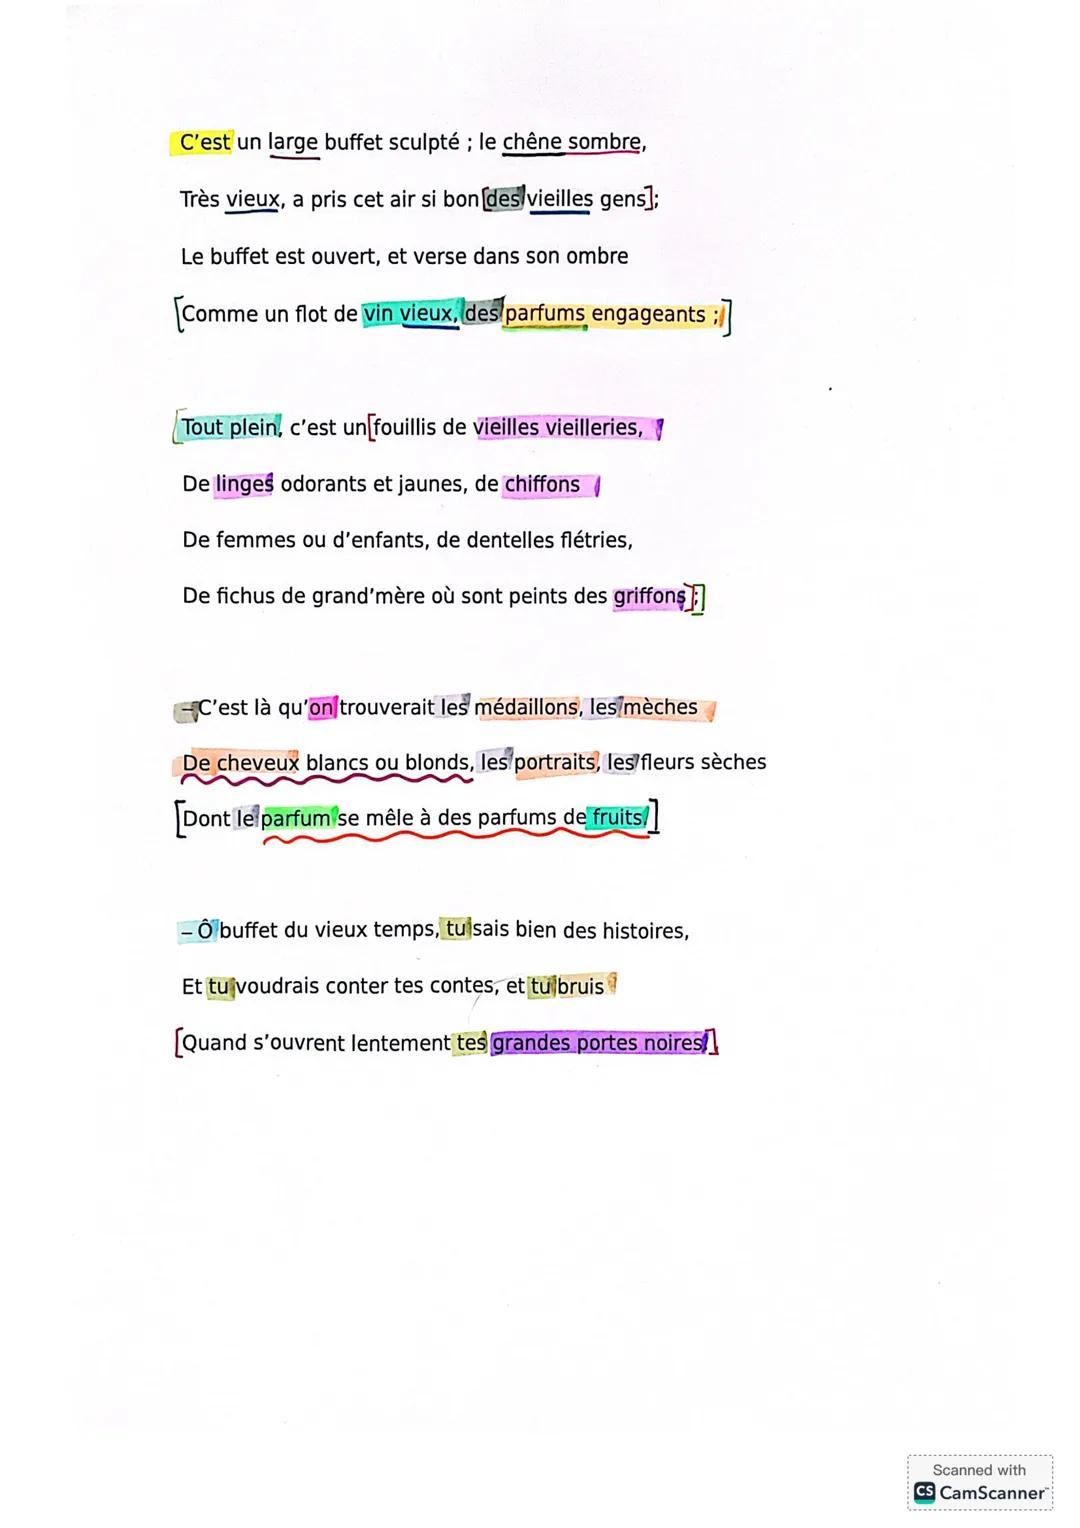 C'est un large buffet sculpté ; le chêne sombre,
Très vieux, a pris cet air si bon [des vieilles gens];
Le buffet est ouvert, et verse dans son ombre
[Comme un flot de vin vieux, des parfums engageants ;]
[Tout plein, c'est un [fouillis de vieilles vieilleries,
De linges odorants et jaunes, de chiffons
De femmes ou d'enfants, de dentelles flétries,
De fichus de grand'mère où sont peints des griffons];]
– C'est là qu'on trouverait les médaillons, les mèches
De cheveux blancs ou blonds, les portraits, les fleurs sèches
[Dont le parfum se mêle à des parfums de fruits.]
– Ô buffet du vieux temps, tu sais bien des histoires,
Et tu voudrais conter tes contes, et tu bruis
[Quand s'ouvrent lentement tes grandes portes noires.]
Scanned with
CS CamScanner™